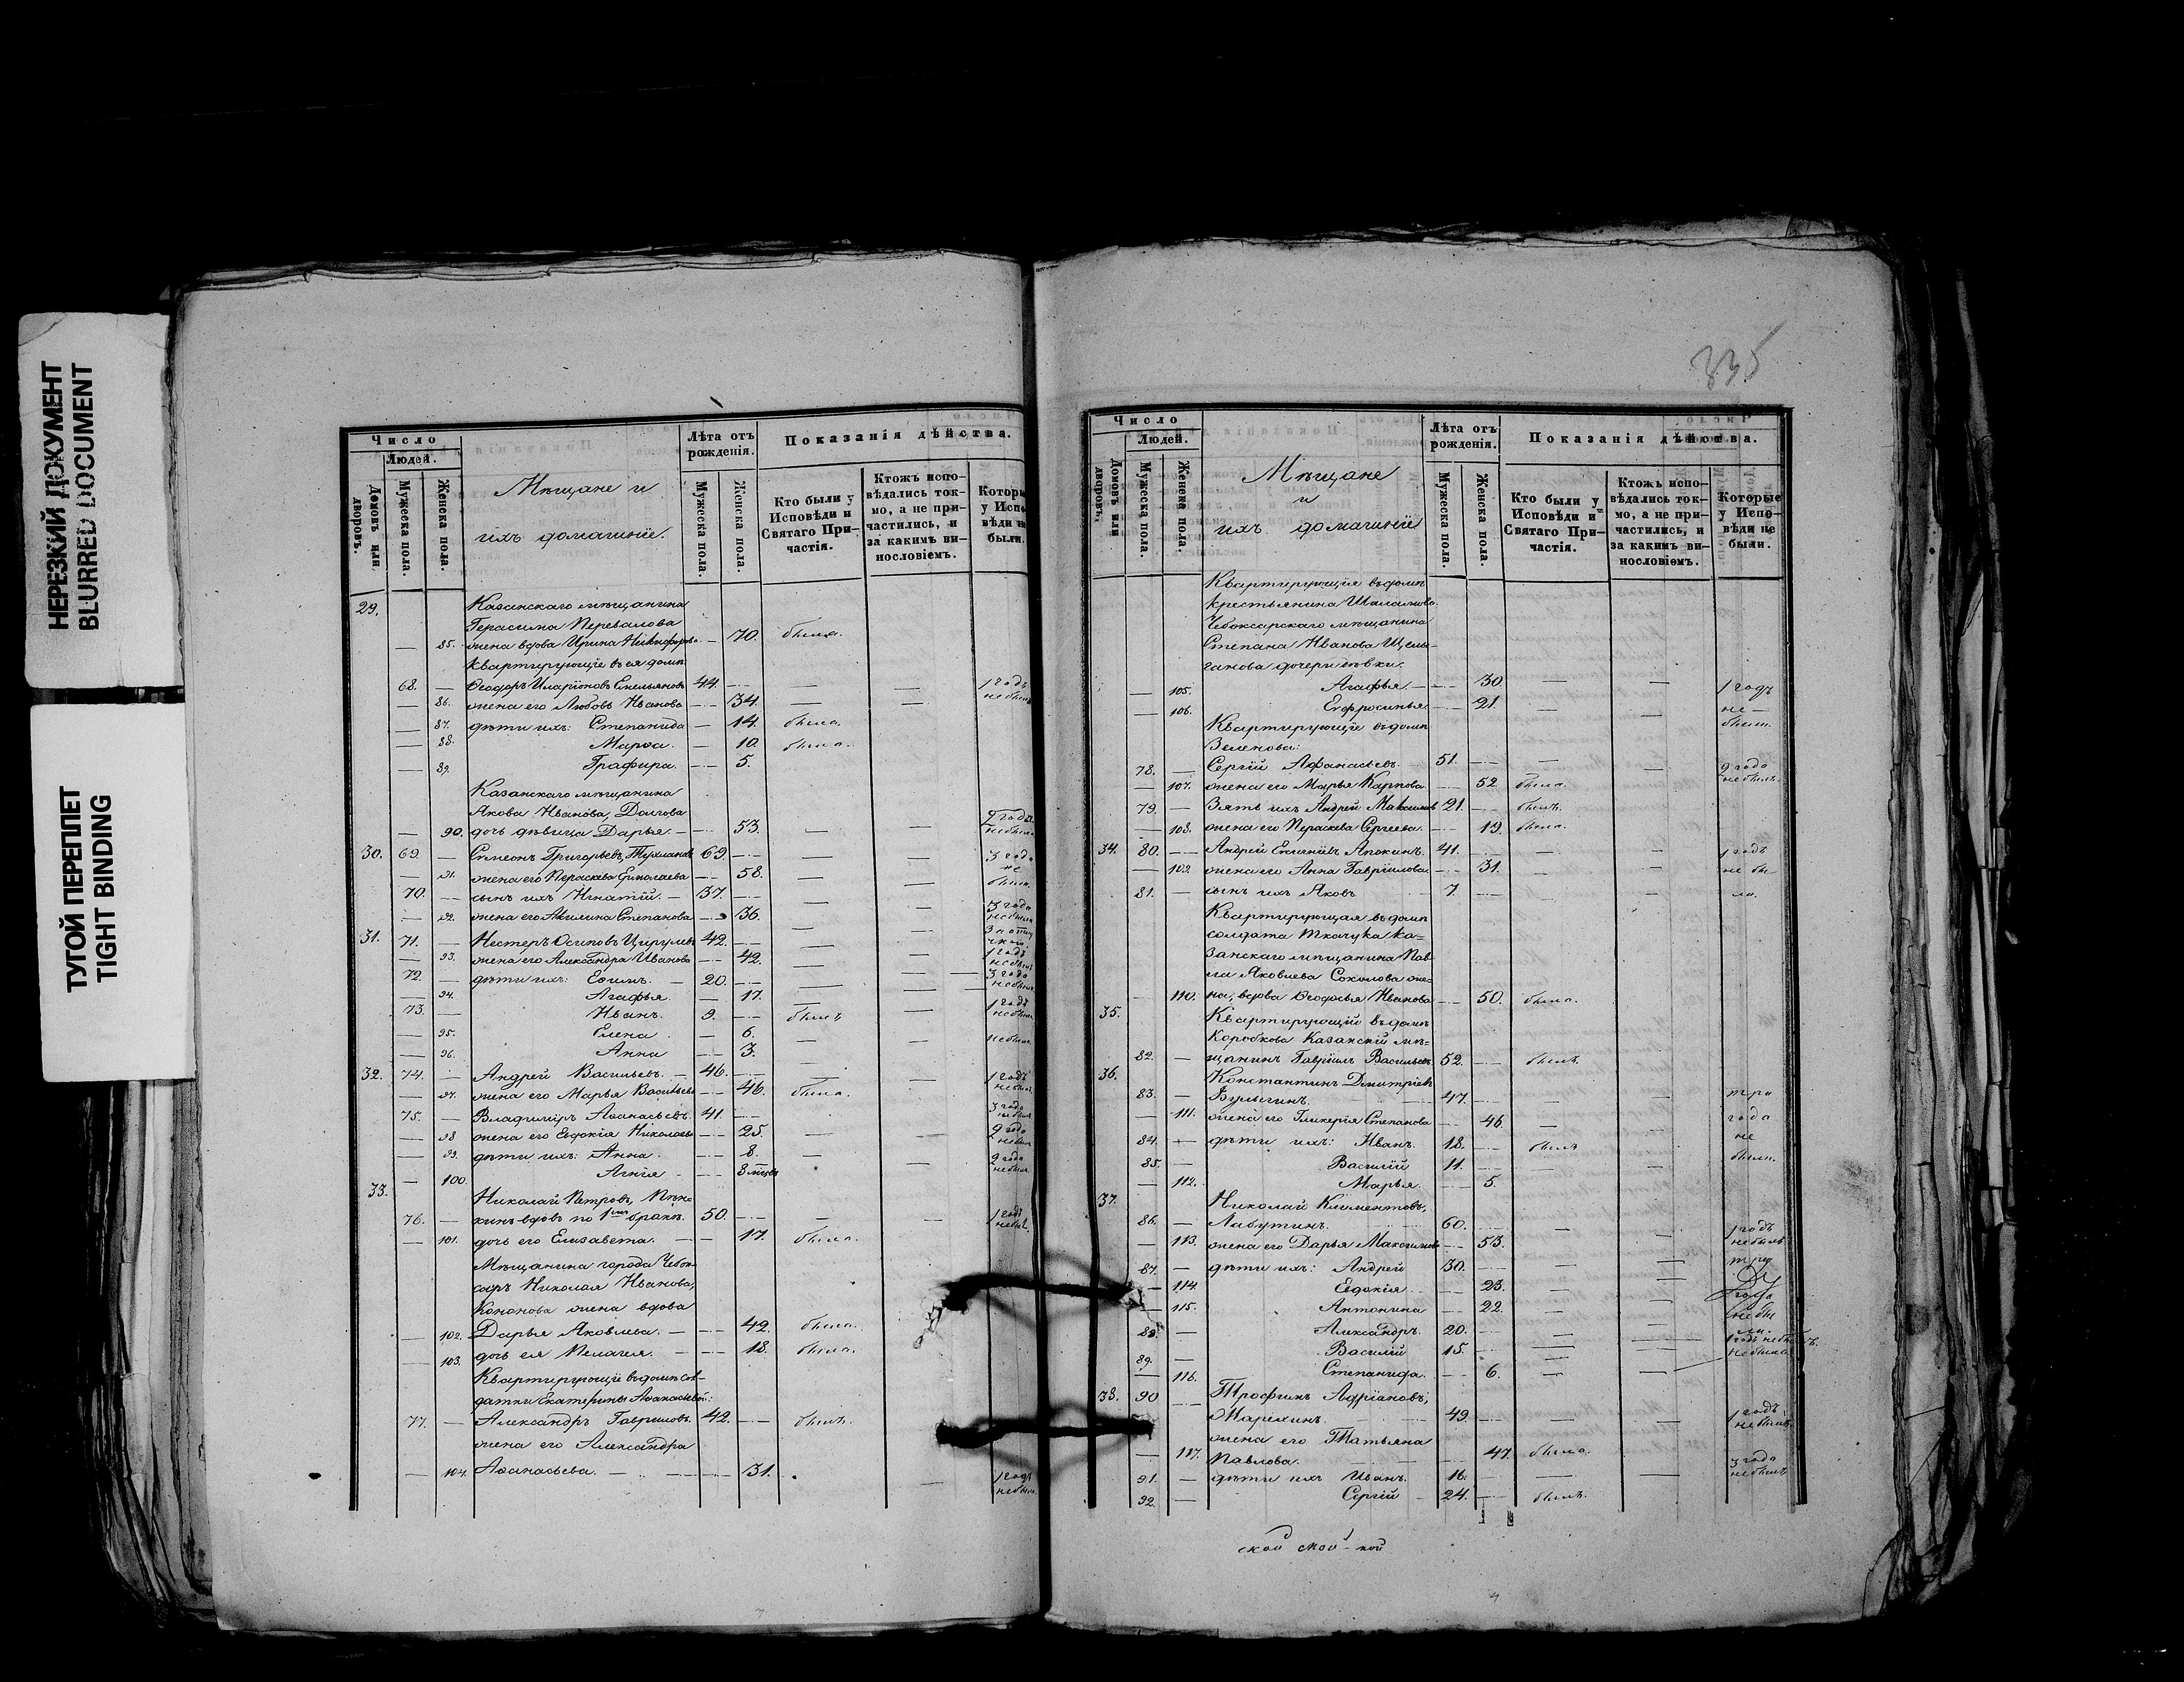 НЕРЕЗКИЙ ДОКУМЕНТ
BLURRED DOCUMENT
ТУГОЙ ПЕРЕПЛЕТ
TIGHT BINDING
Число
Людей.
Домовъ или дворовъ.
Мужеска пола.
Женска пола.
Мѣщане и
ихъ домашніе.
Лѣта отъ рожденія.
Мужеска пола.
Женска пола.
Показанія дѣйства.
Кто были у Исповѣди и Святаго При-частія.
Ктожъ испо-вѣдались ток-мо, а не при-частились, и за какимъ ви-нословіемъ.
Которы у Испо вѣди не были.
29. Казанскаго мѣщанина
Герасима Перевалова
— 85. жена вдова Ирина Никифорова — 70. была.
квартирующіе въ ея домѣ
68. — Ѳеодоръ Иларіоновъ Емельяновъ 44. — — — 1 годъ
— 86. жена его Любовь Иванова — 34. — — не были
— 87. дѣти ихъ: Степанида — 14. была.
— 88. Марѳа. — 10. была.
— 89. Графира. — 5.
Казанскаго мѣщанина
Якова Иванова, Долгова
— 90. дочь дѣвица Дарья. — 53. — — 2 года не была
30. 69. — Симеонъ Григорьевъ, 69. — — — 3 года
— 91. жена его Параскева Ермолаева — 58. — — не
70. — сынъ ихъ Игнатій. — 37. — — — были.
— 92. жена его Акилина Степанова — 36. — — 3 года не была
31. 71. — Нестеръ Осиповъ 42. — — —
— 93. жена его Александра Иванова — 42. — — 1 годъ не была
72. — дѣти ихъ: Ефимъ. — 20. — — — 3 года не былъ
— 94. Агафья. — 17. — —
73. — Иванъ. 9. — былъ — 1 годъ не была
— 95. Елена. — 6. — — не была
— 96. Анна — 3. —
32. 74. — Андрей Васильевъ. — 46. — — — 1 годъ не былъ
— 97. жена его Марья Васильева — 46. была.
75. — Владиміръ Аѳанасьевъ. 41. — 3 года не былъ
— 98 жена его Евдокія Николаева — 25. — — 2 года не была
— 99. дѣти ихъ: Анна. — 8. — — 2 года не была
— 100. Агнія — 8 мѣсяц
33. Николай Петровъ,
76. — вдовъ по 1мъ бракѣ. 50. — — — 1 годъ не былъ
— 101. дочь его Елизавета. — 17. была.
Мѣщанина города Чебок-
саръ Николая Иванова,
Кононова жена вдова
— 102. Дарья Яковлева. — 42. была.
— 103. дочь ея Пелагея. — 18. была.
Квартирующіе въ домѣ сол-
датки Екатерины Аѳанасьевой:
77. — Александръ Гавриловъ. 42. — былъ.
жена его Александра
— 104. Аѳанасьева. — 31. — 1 годъ не была.
335
Число
Людей.
Домовъ или дворовъ.
Мужеска пола.
Женска пола.
Мѣщане
и
ихъ домашніе
Лѣта отъ рожденія.
Мужеска пола.
Женска пола.
Показанія дѣйства.
Кто были у Исповѣди и Святаго При-частія.
Ктожъ испо-вѣдались ток-мо, а не при-частились, и за какимъ ви-нословіемъ.
Которые у Испо-вѣди не были.
Квартирующія въ домѣ
крестьянина
Чебоксарскаго мѣщанина
Степана Иванова
дочери дѣвки:
— 105. Агафья. — 30 — — 1 годъ
— 106. Ефросинья. — 21. — — не —
Квартирующіе въ домѣ были.
Зеленова:
78. — Сергій Афанасьевъ. 51. — — — 2 года
— 107. жена его Марья Карпова — 52 была. не былъ.
79. — Зять ихъ Андрей Максимовъ 21. — былъ.
— 108. жена его Параскева Сергеева. — 19. была.
34. 80. — Андрей 41. — — — 1 годъ
— 109. жена его Анна Гавріилова — 31. — не бы
81. — сынъ ихъ Яковъ — 7. — — ли.
Квартирующая въ домѣ
солдата Ткачука Ка=
занскаго мѣщанина Пав-
ла Яковлева Соколова же=
110. на, вдова Ѳеодосья Иванова — 50. была.
35. Квартирующій въ домѣ
Коробкова Казанскій мѣ=
82. — щанинъ Гавріилъ Васильевъ 52. — былъ.
36. Константинъ Димитріевъ
83. — Булыгинъ. 47. — — — три
— 111. жена его Гликерія Степанова — 46. — года
84. — дѣти ихъ: Иванъ. 18. — былъ не
85. — Василій 11. — — — были.
— 112. Марья. — 5.
37. Николай Климентовъ,
86. — Лабутинъ. 60. — — — 1 годъ
— 113. жена его Дарья Максимова — 53. — не былъ
87. — дѣти ихъ: Андрей 30. — три
— 114. Евдокія — 23. — — года
— 115. Антонина — 22. — — не бы
88. — Александръ. 20. — — — ли.
89. — Василій 15. — — — 1 годъ не былъ.
— 116. Степанида. — 6. — — не была.
38. 90 — Трофимъ Адріановъ,
49. — — — 1 годъ не былъ.
жена его Татьяна
— 117. Павлова. — 47. была.
91. — дѣти ихъ Иванъ. 16. — — — 3 года не былъ
92. — Сергій — 24. — былъ.